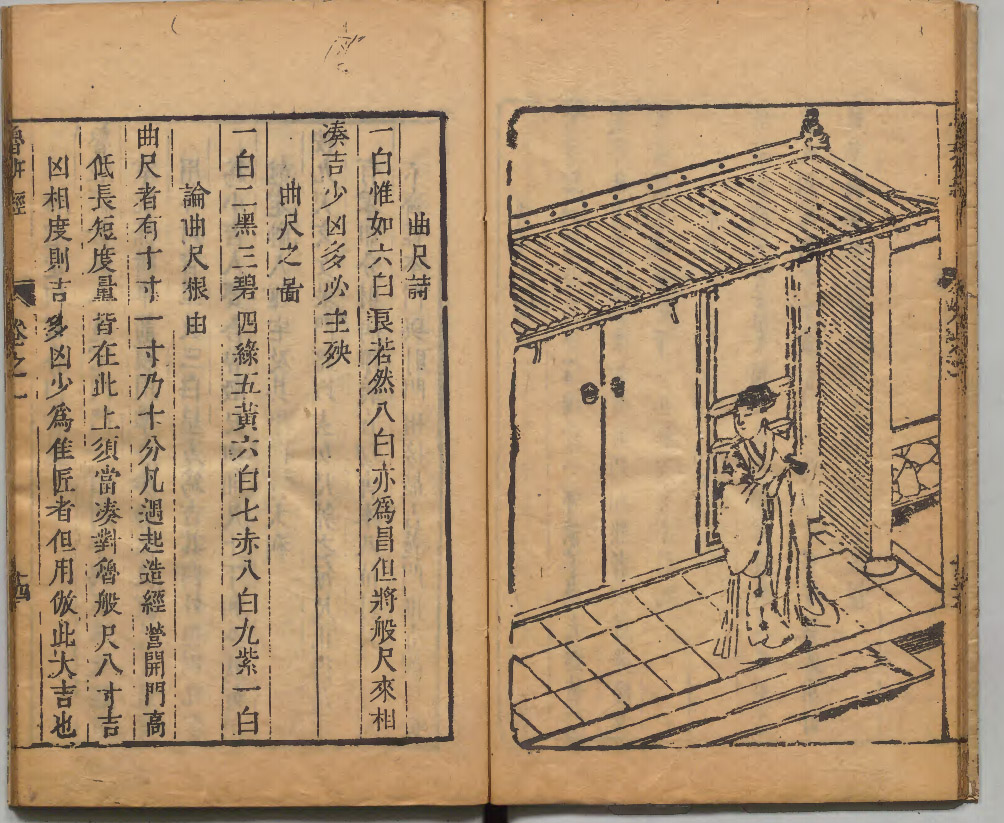 曲尺詩
一白惟如六白良若然八白亦爲昌但將般尺來相
湊吉少凶多必主殃
曲尺之啚
一白二黑三碧四綠五黃六白七赤八白九紫一白
論曲尺根由
曲尺者有十寸一寸乃十分凡遇起造經營開門高
低長短度量皆在此上須當湊對魯般尺八寸吉
凶相度則吉多凶少爲佳匠者但用倣此大吉也
魯班經
卷之一
十四